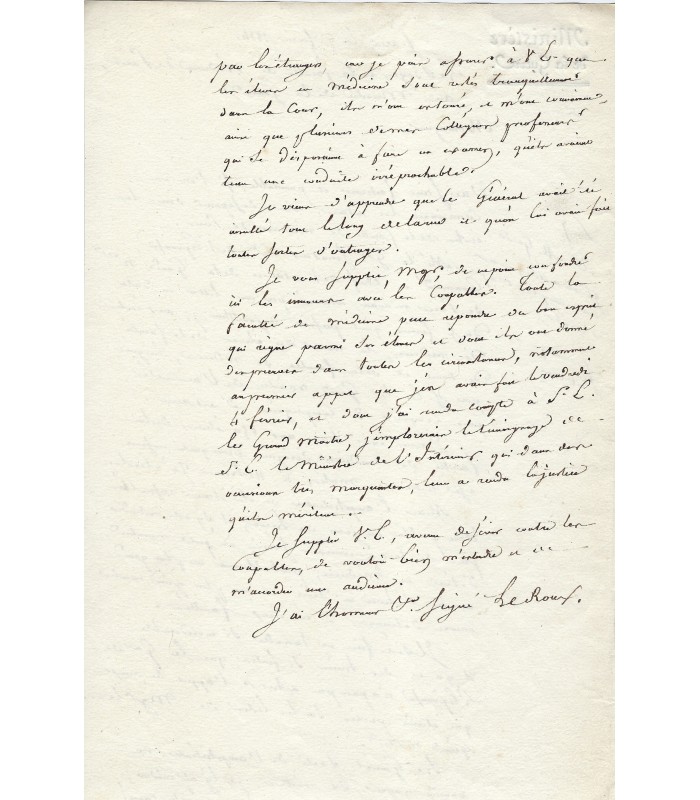 par les étrangers, car je puis assurer à V. E. que
les élèves en médecine sont restés tranquillement
dans la Cour, ils m'ont entouré, et m'ont convaincu
ainsi que plusieurs de mes Collègues professeurs
qui se disposaient à faire un examen, qu'ils avaient
tenu une conduite irréprochable.
Je viens d'apprendre que le Général avait été
insulté tout le long de la rue et qu'on lui avait fait
toutes sortes d'outrages.
Je vous supplie, Mgr, de ne point confondre
ici les innocens avec les Coupables. Toute la
faculté de médecine peut répondre du bon esprit
qui règne parmi ses élèves et dont ils ont donné
des preuves dans toutes les circonstances, notamment
au premier appel que j'en avais fait le vendredi
4 février, et dont j'ai rendu compte à S. E.
le Grand Maître, j'implorerais le témoignage de
S. E. le Ministre de l'Intérieur qui dans des
occasions très marquantes, leur a rendu la justice
qu'ils méritent.
Je supplie V. E., avant de sévir contre les
Coupables, de vouloir bien m'entendre et de
m'accorder une audience.
J'ai l'honneur &a. Signé Le Roux.
Ministère